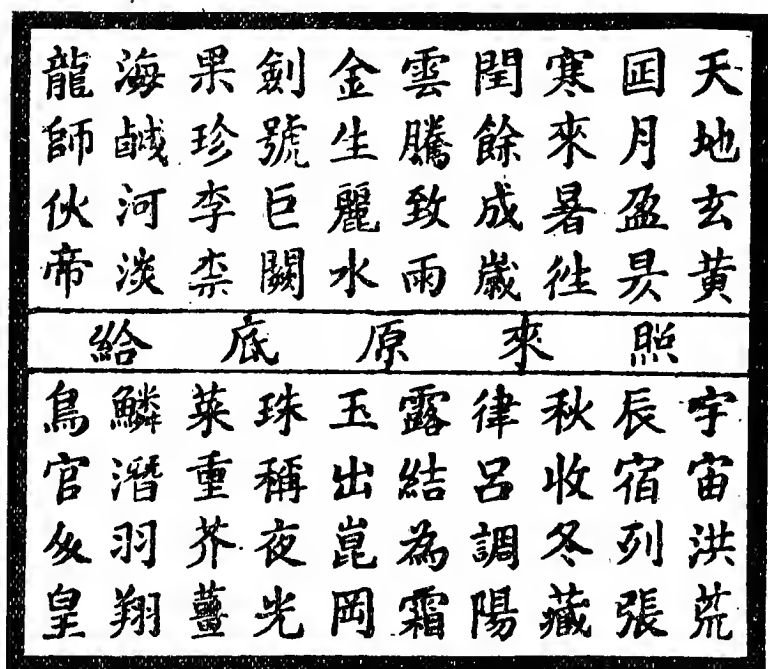 天地玄黄
囸月盈昃
寒來暑徃
閏餘成歲
雲騰致雨
金生麗水
劍號巨闕
果珍李柰
海鹹河淡
龍師伙帝
照來原底給
宇宙洪荒
辰宿列張
秋收冬藏
律呂調陽
露結為霜
玉出崑岡
珠稱夜光
菜重芥薑
鱗潛羽翔
鳥官皇